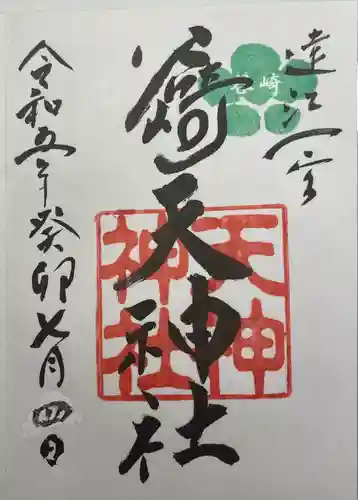 遠江一宮
谷崎
谷崎天神社
天神
神社
令和五年癸卯七月四日